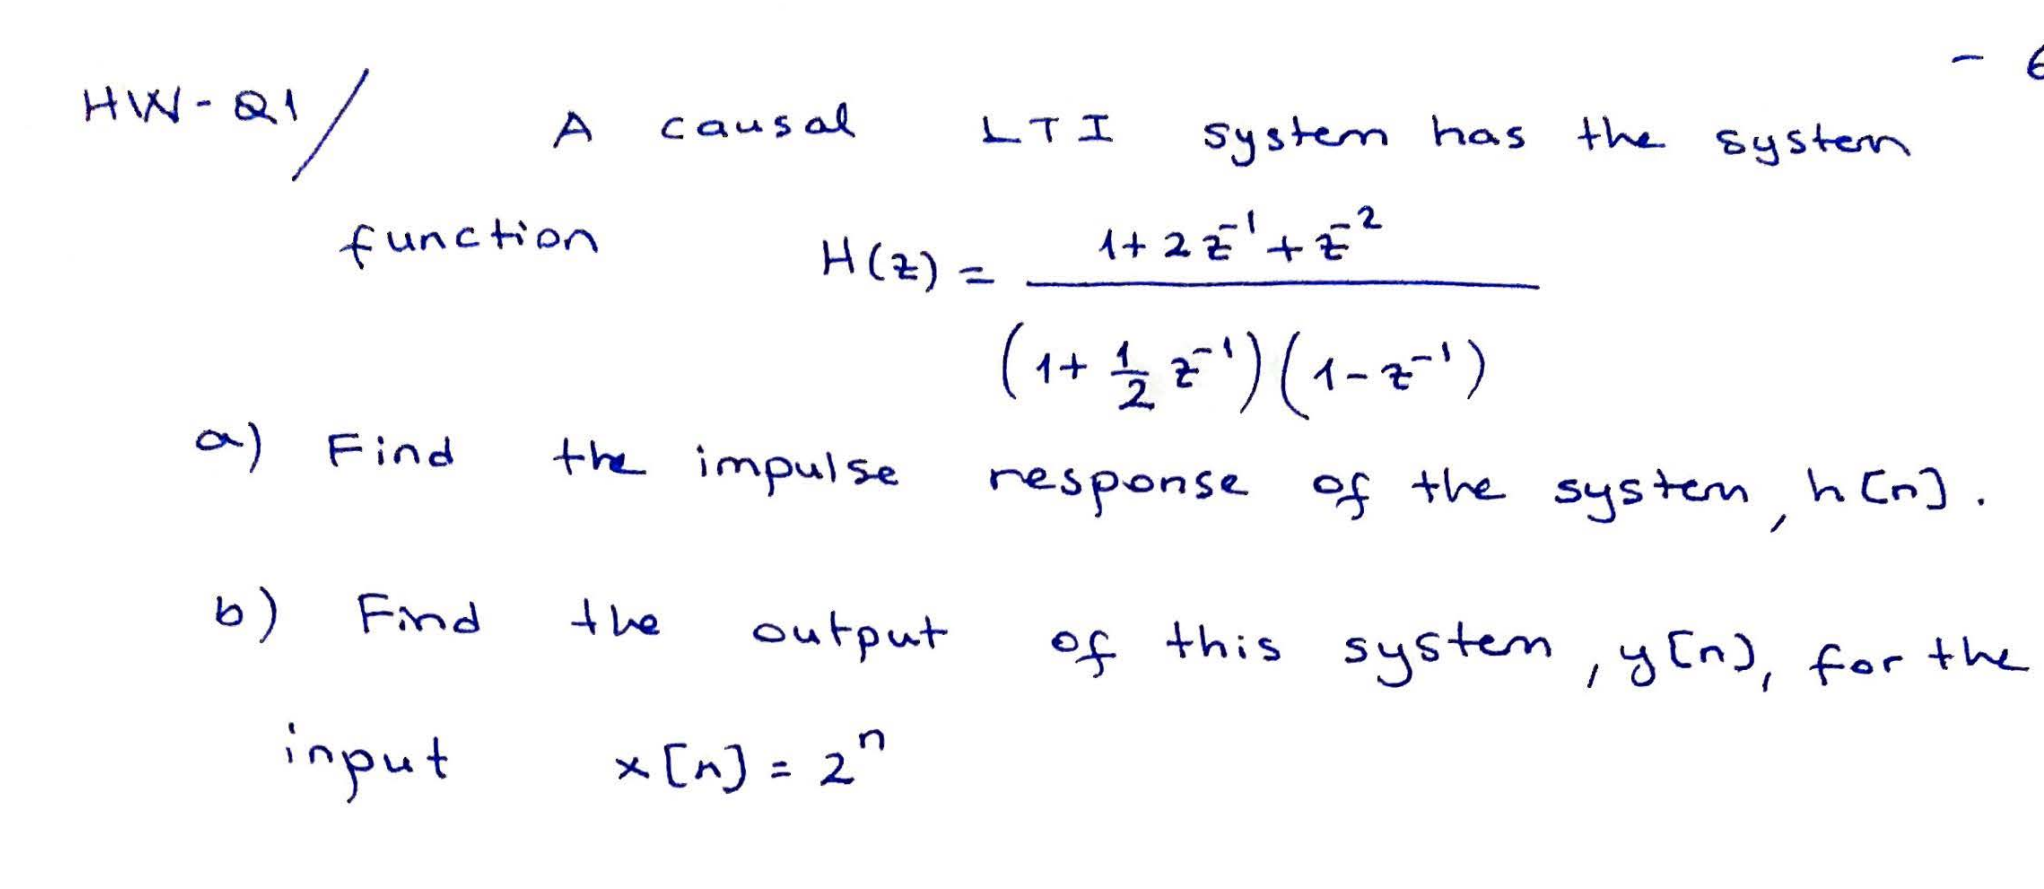 HW-Q1/ A causal LTI system has the system
function H(z) = (1+2z⁻¹+z⁻²) / ((1+½z⁻¹)(1-z⁻¹))
a) Find the impulse response of the system, h[n].
b) Find the output of this system, y[n], for the
input x[n] = 2ⁿ